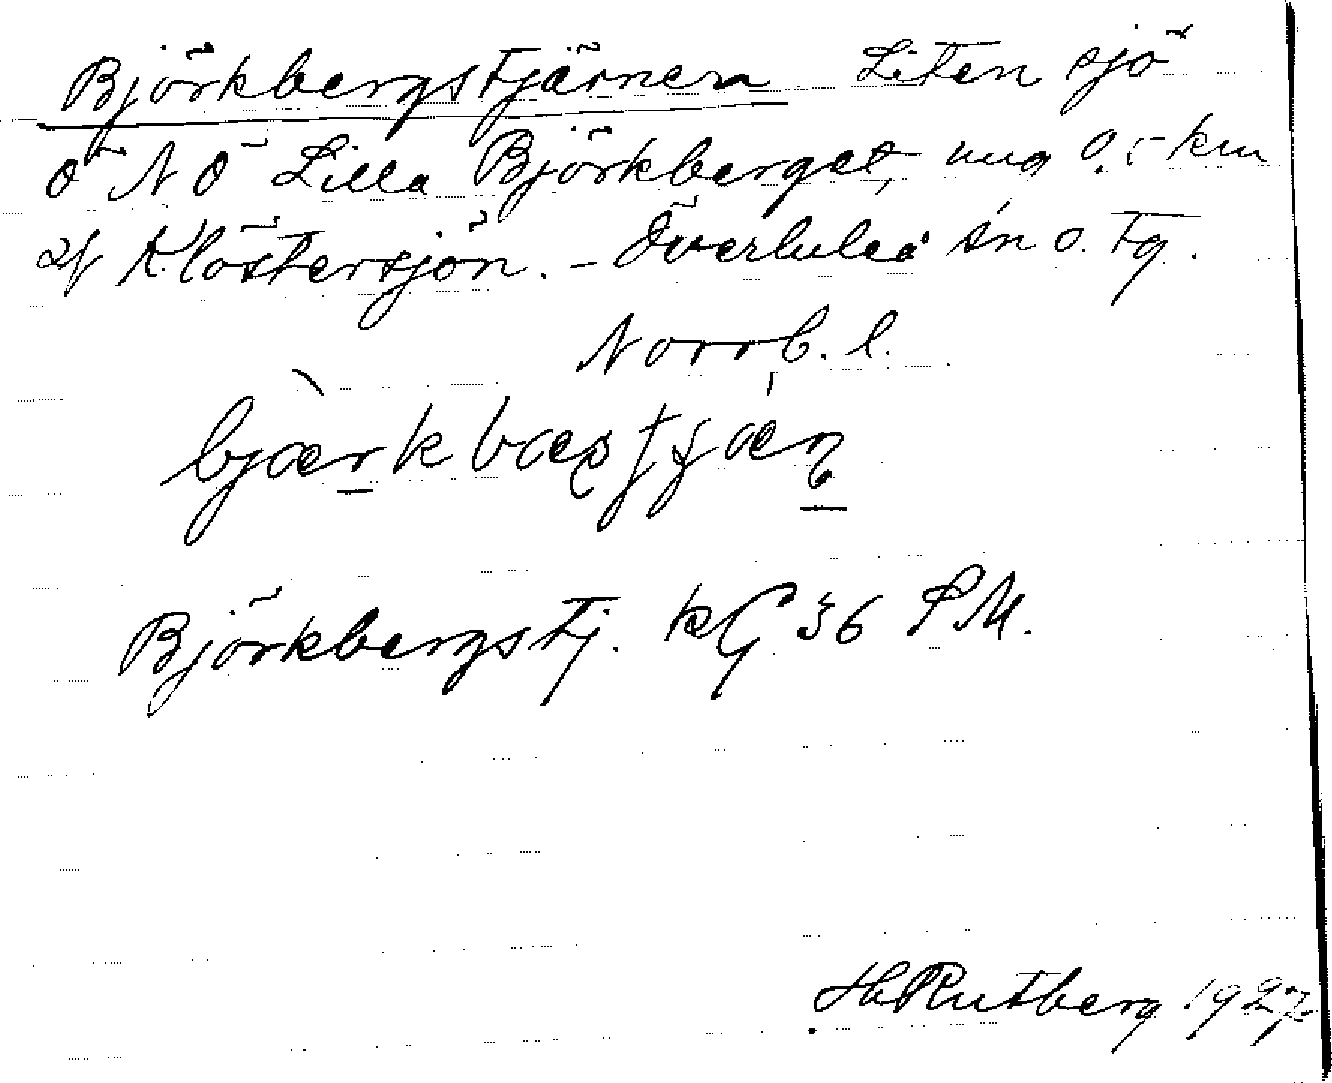 Björkbergstjärnen Liten sjö
ö N ö Lilla Björkberget, ung 0,5 km
af Klöstersjön. – Överluleå sn o. tg.
Norrb. l.
bjærkbæs tjæṇ
Björkbergstj. kG 36 S M.
H Rutberg 1927